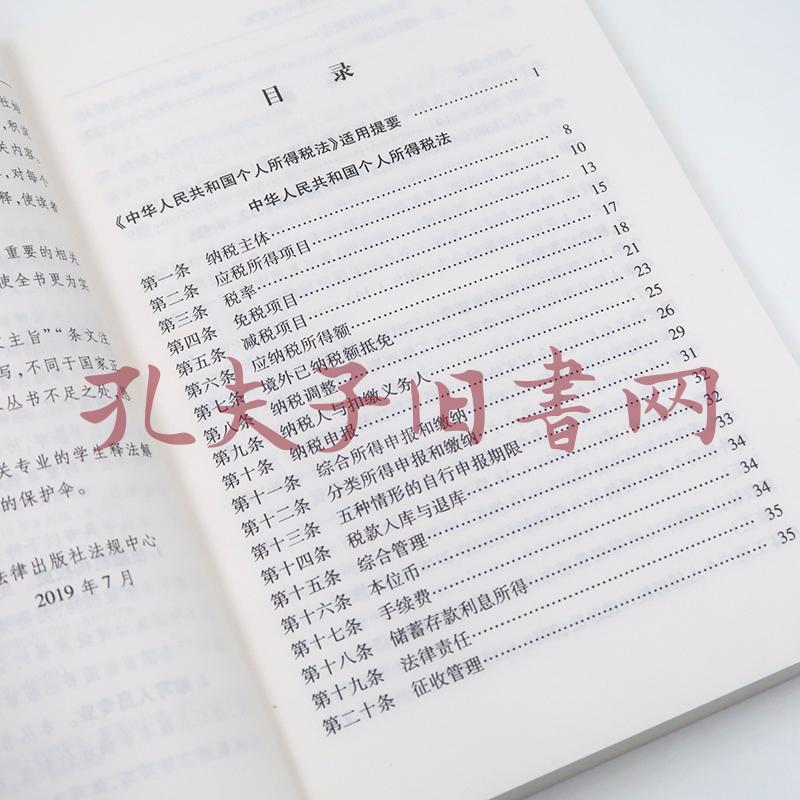 社始
积淀
关内容。
对每个
释，使读者
重要的相关
使全书更为实
文主旨”“条文注
写，不同于国家正
丛书不足之处，恳
关专业的学生释法解
的保护伞。
法律出版社法规中心
2019年7月
目 录
《中华人民共和国个人所得税法》适用提要 …… 1
中华人民共和国个人所得税法
第一条 纳税主体 …… 8
第二条 应税所得项目 …… 10
第三条 税率 …… 13
第四条 免税项目 …… 15
第五条 减税项目 …… 17
第六条 应纳税所得额 …… 18
第七条 境外已纳税额抵免 …… 21
第八条 纳税调整 …… 23
第九条 纳税人与扣缴义务人 …… 25
第十条 纳税申报 …… 26
第十一条 综合所得申报和缴纳 …… 29
第十二条 分类所得申报和缴纳 …… 31
第十三条 五种情形的自行申报期限 …… 32
第十四条 税款入库与退库 …… 32
第十五条 综合管理 …… 33
第十六条 本位币 …… 34
第十七条 手续费 …… 34
第十八条 储蓄存款利息所得 …… 34
第十九条 法律责任 …… 35
第二十条 征收管理 …… 35
孔夫子旧书网